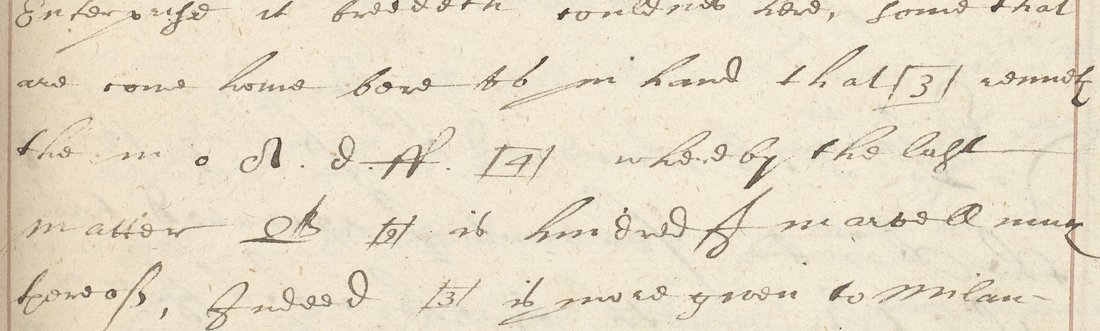 Enterprise it breedeth couldnes here, some that
are come home bere us in hand that [3] renueth
the m o . d. ff . [4] whereby the last
matter is hindred I marvell muy
thereof, Indeed [3] is more given to Milan-